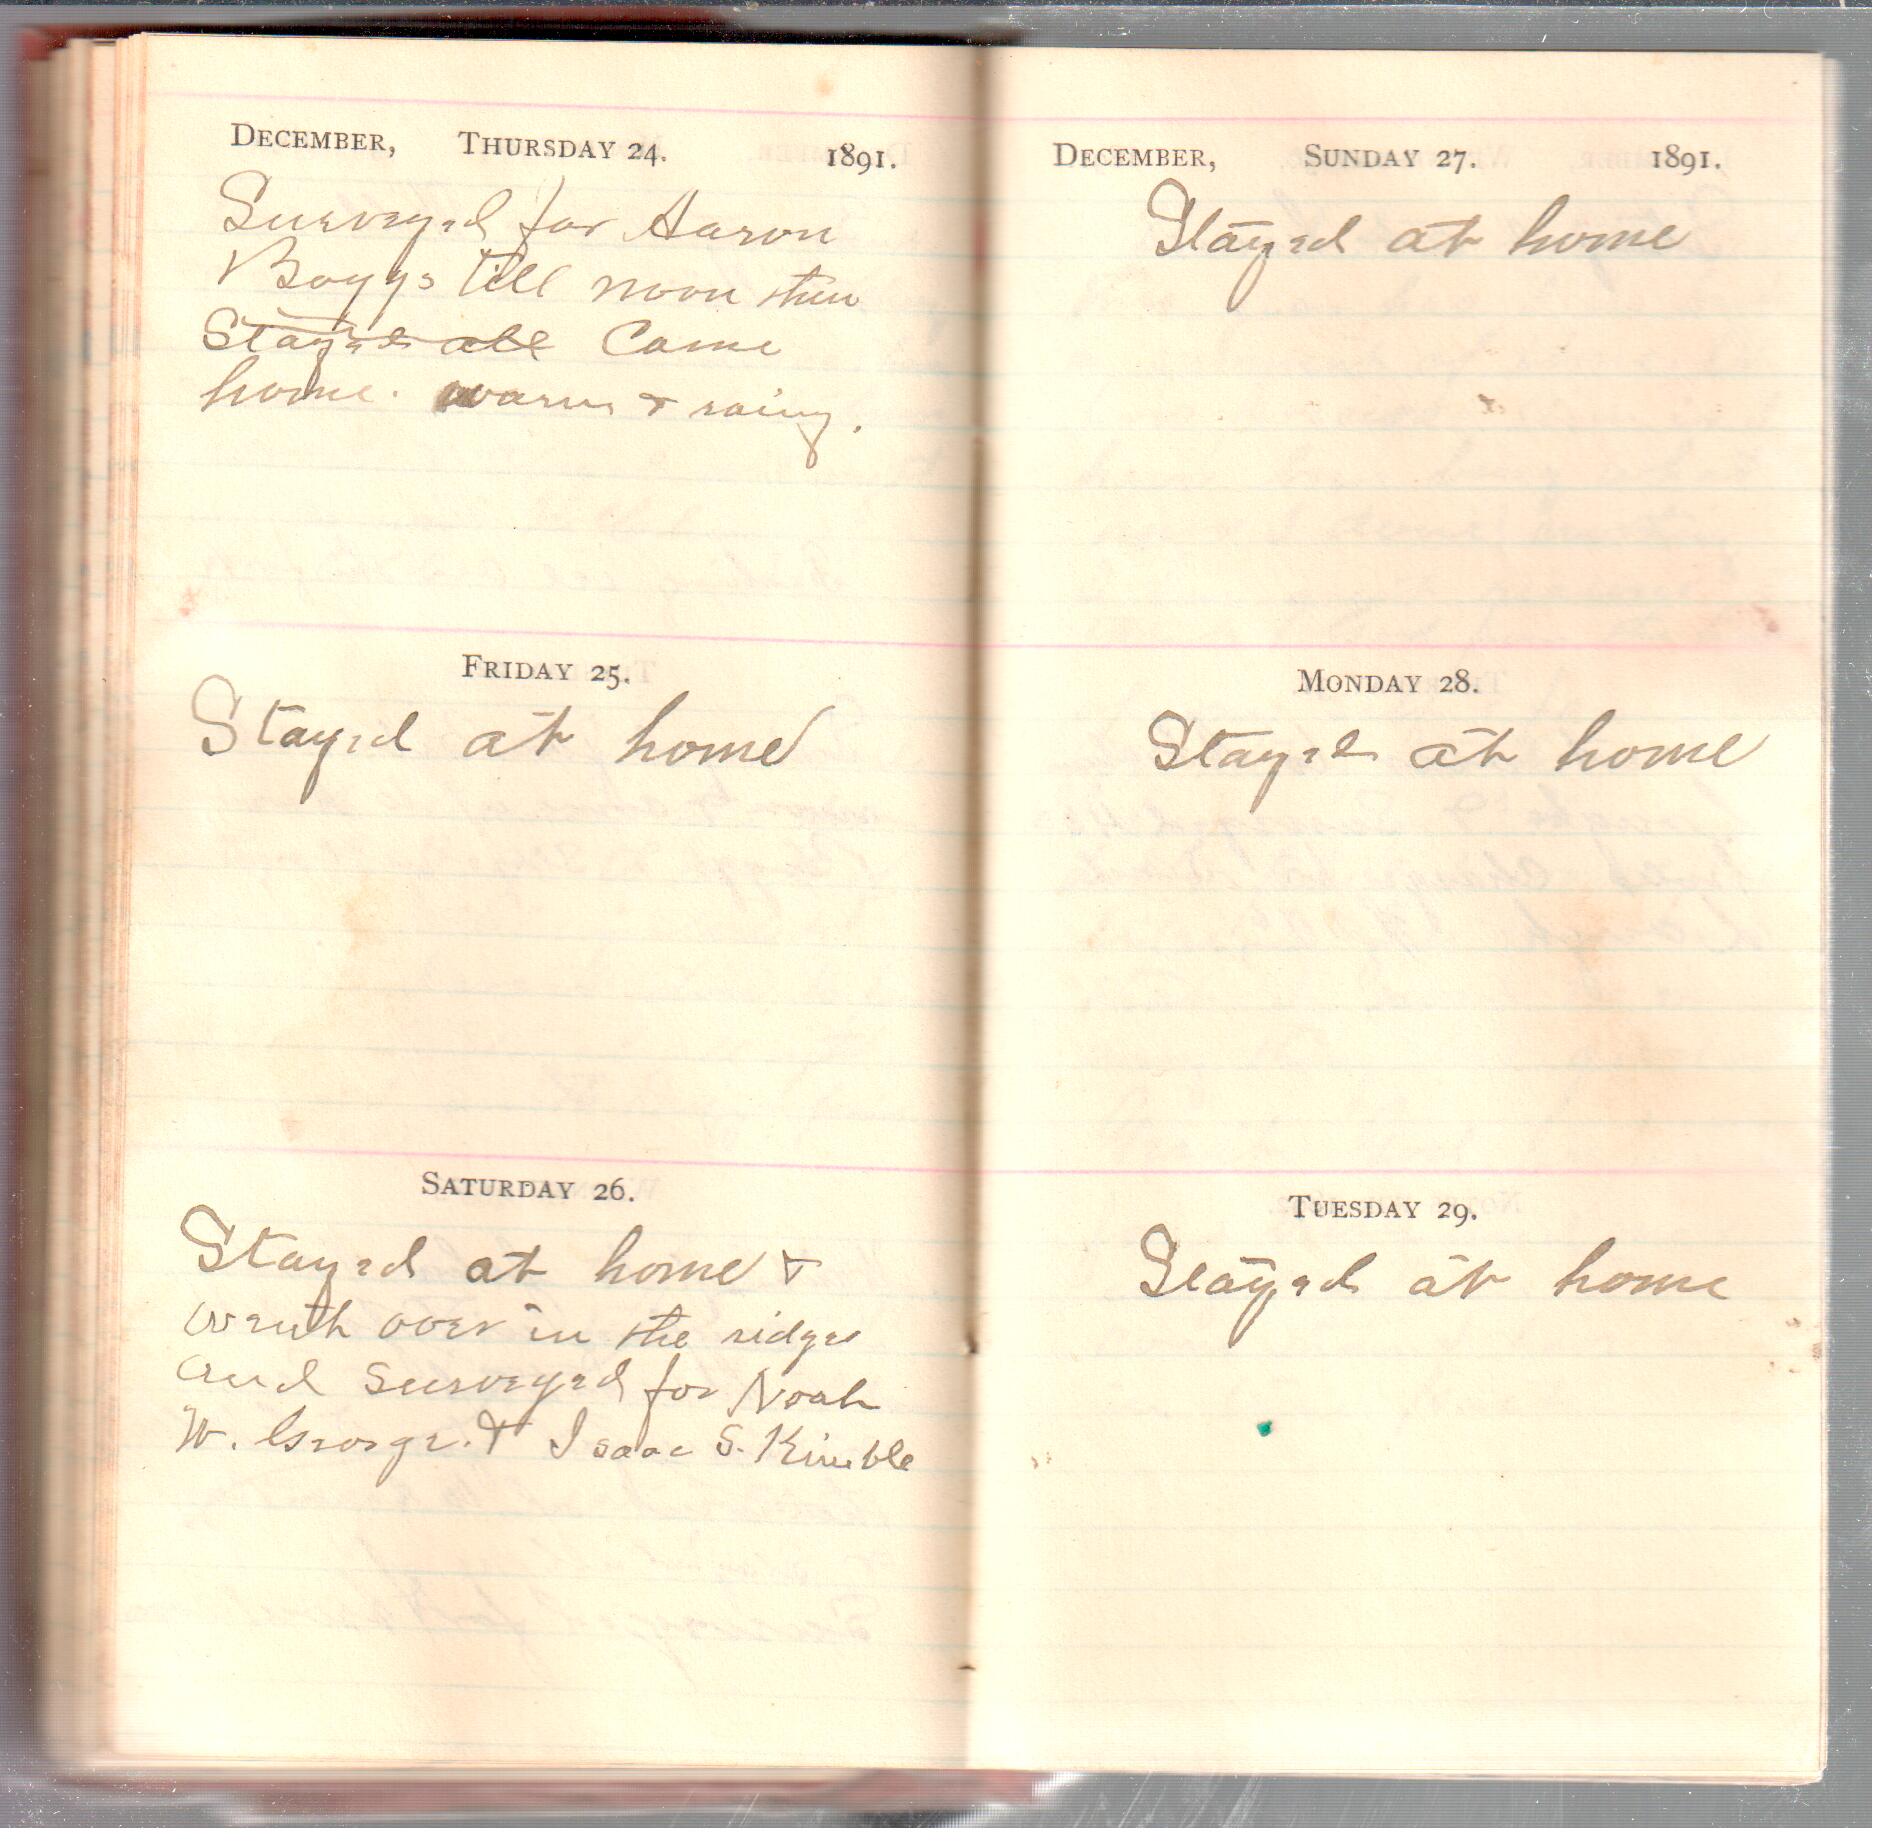 DECEMBER, THURSDAY 24. 1891.
Surveyed for Aaron
Boggs till noon then
Stayed all Came
home. warm & rainy.
FRIDAY 25.
Stayed at home
SATURDAY 26.
Stayed at home &
wenth over in the ridges
and surveyed for Noah
W. George. & Isaac S. Kimble
DECEMBER, SUNDAY 27. 1891.
Stayed at home
MONDAY 28.
Stayed at home
TUESDAY 29.
Stayed at home